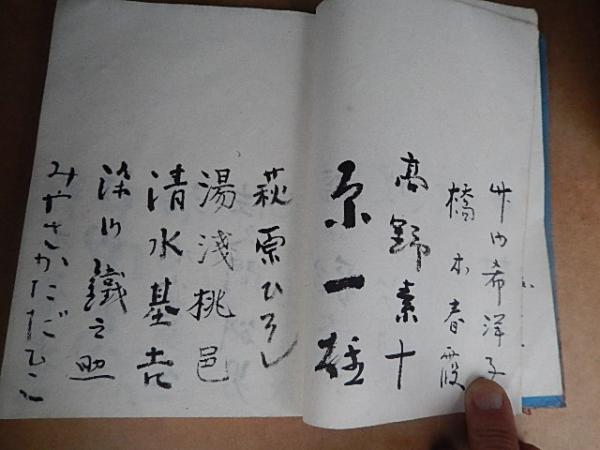 竹内希洋子
橋本春霞
高野素十
京一雄
萩原ひろし
湯浅桃邑
清水基吉
深川鐵之助
みやさかただひこ